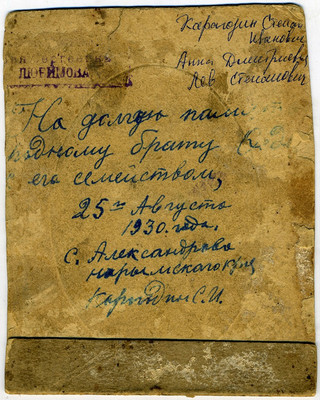 Карагодин Степан
Иванович
Анна Дмитриевна
Лев Степанович
ЛЮБИМОВА
На долгую пам
родному брату
его семейством,
25го Августа
1930. года.
с. Александрово
нарымского
Карагодин С.И.